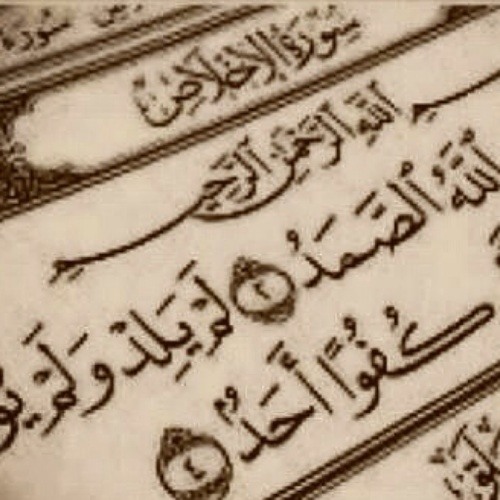 سورة
سُورَةُ الإِخْلَاصِ
اللَّهِ الرَّحْمَٰنِ الرَّحِيمِ
اللَّهُ الصَّمَدُ ٢ لَمْ يَلِدْ وَلَمْ
كُفُوًا أَحَدٌ ٤